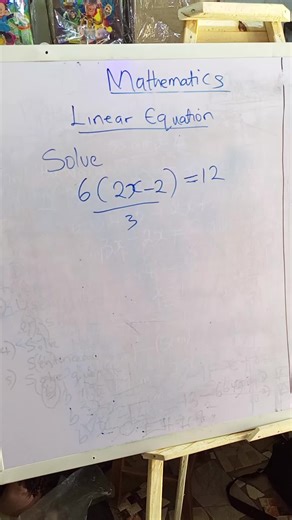 Mathematics
Linear Equation
Solve
6(2x-2) =12
3